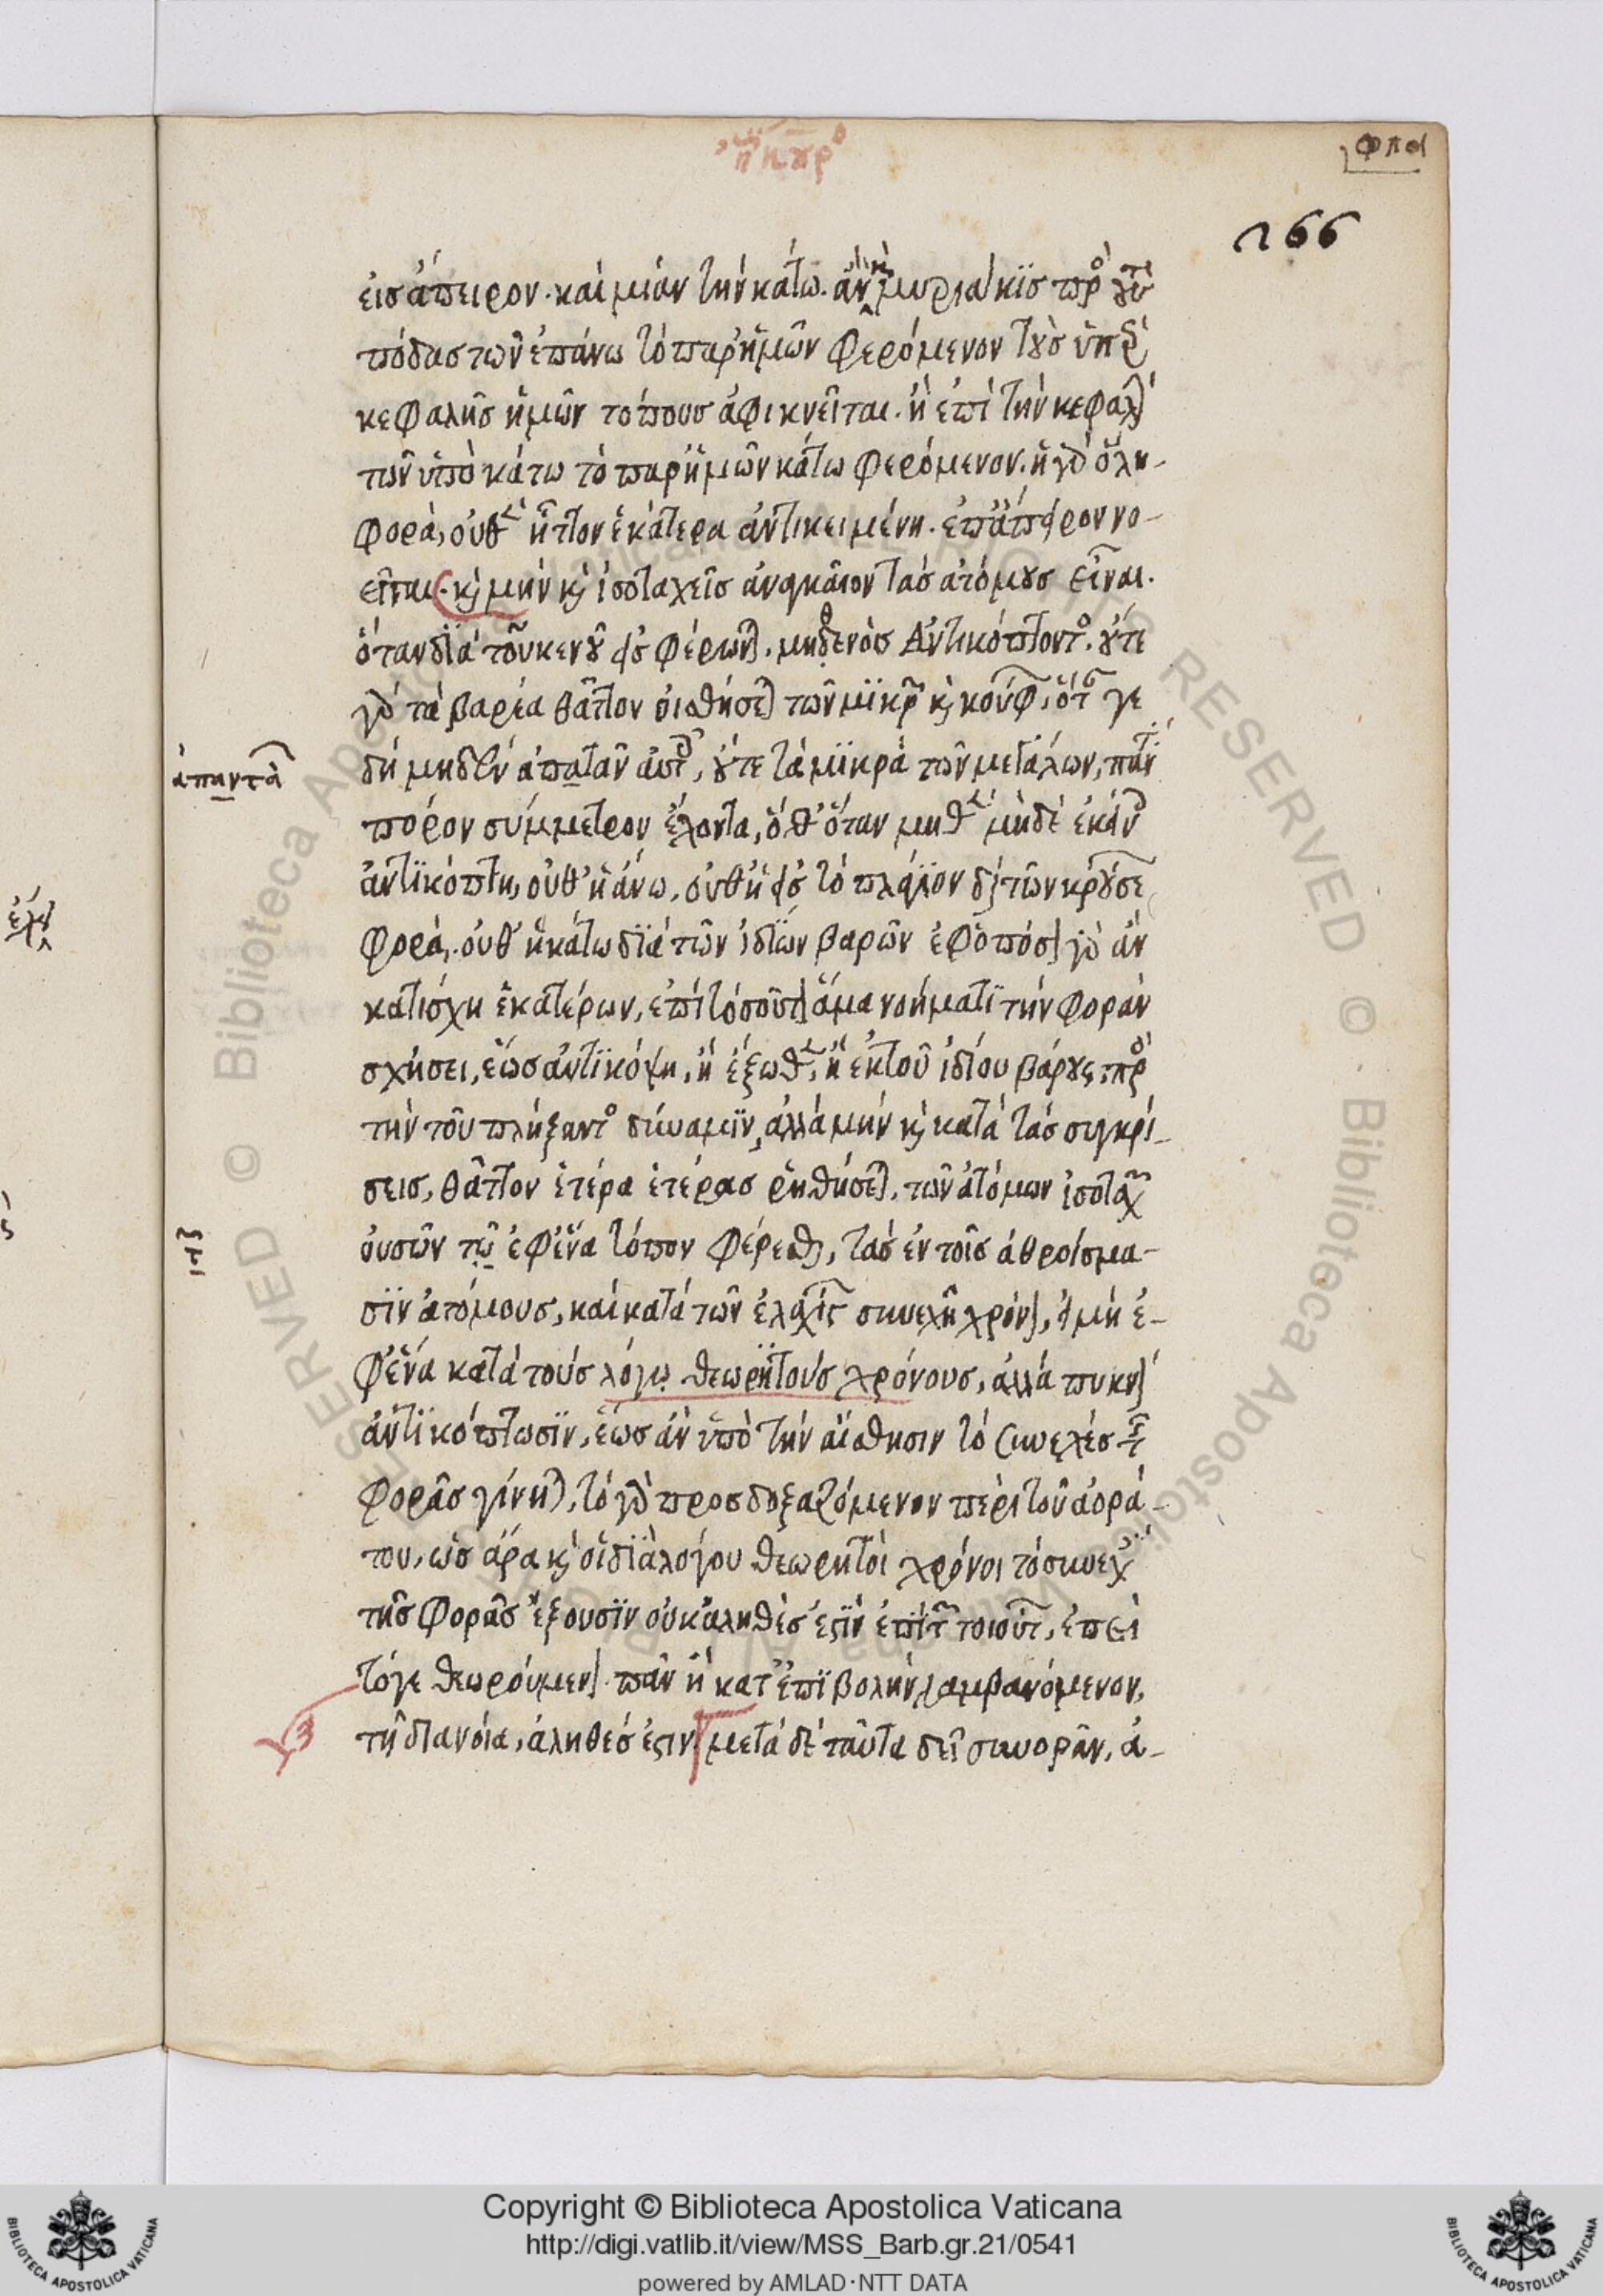 ἐπίκουρος
φπα
266
εἰς ἄπειρον. καὶ μίαν τὴν κάτω. ἂν καὶ μυριάκις πρὸς τοὺς
πόδας τῶν ἐπάνω τὸ παρ' ἡμῶν φερόμενον τοὺς ὑπὲρ
κεφαλῆς ἡμῶν τόπους ἀφικνεῖται. ἢ ἐπὶ τὴν κεφαλὴν
τῶν ὑποκάτω τὸ παρ' ἡμῶν κάτω φερόμενον. ἡ γὰρ ὅλη
φορὰ, οὐθὲν ἧττον ἑκάτερα ἀντικειμένη. ἐπ' ἄπειρον νο-
εῖται. καὶ μὴν καὶ ἰσοταχεῖς ἀναγκαῖον τὰς ἀτόμους εἶναι.
ὅταν διὰ τοῦ κενοῦ εἰσφέρωνται. μηθενὸς ἀντικόπτοντος. οὔτε
γὰρ τὰ βαρέα θᾶττον οἰσθήσεται τῶν μικρῶν καὶ κούφων, ὅταν γε
δὴ μηδὲν ἀπατᾶν αὐτοῖς, οὔτε τὰ μικρὰ τῶν μεγάλων, πάντα
ἁπαντᾶ
πόρον σύμμετρον ἔχοντα, ὅθ' ὅταν μηθὲν μηδὲ ἐκείνοις
ἀντικόπτη, οὐθ' ἡ ἄνω, οὐθ' ἡ εἰς τὸ πλάγιον διὰ τῶν κρούσεων
φορὰ, οὐθ' ἡ κάτω διὰ τῶν ἰδίων βαρῶν ἐφ' ὁπόσον γὰρ ἂν
κατίσχη ἑκατέρων, ἐπὶ τοσοῦτον ἅμα νοήματι τὴν φορὰν
σχήσει, ἕως ἀντικόψη, ἢ ἔξωθεν, ἢ ἐκ τοῦ ἰδίου βάρους, πρὸς
τὴν τοῦ πλήξαντος δύναμιν, ἀλλὰ μὴν καὶ κατὰ τὰς συγκρί-
σεις, θᾶττον ἑτέρα ἑτέρας ῥηθήσεται, τῶν ἀτόμων ἰσοταχῶν
οὐσῶν τῷ ἐφ' ἕνα τόπον φέρεσθαι, τὰς ἐν τοῖς ἀθροίσμα-
σιν ἀτόμους, καὶ κατὰ τῶν ἐλάχιστον συνεχῆ χρόνον, εἰ μὴ ἐ-
φ' ἕνα κατὰ τοὺς λόγῳ θεωρητοὺς χρόνους, ἀλλὰ πυκνὸν
ἀντικόπτωσιν, ἕως ἂν ὑπὸ τὴν αἴσθησιν τὸ συνεχὲς τῆς
φορᾶς γίνηται, τὸ γὰρ προσδοξαζόμενον περὶ τοῦ ἀορά-
του, ὡς ἄρα καὶ οἱ διὰ λόγου θεωρητοὶ χρόνοι τὸ συνεχὲς
τῆς φορᾶς ἕξουσιν οὐκ ἀληθές ἐστιν ἐπὶ τῶν τοιούτων, ἐπεὶ
τό γε θεωρούμενον πᾶν ἢ κατ' ἐπιβολὴν λαμβανόμενον,
τῇ διανοία, ἀληθές ἐστιν μετὰ δὲ ταῦτα δεῖ συνορᾶν, ἀ-
Copyright © Biblioteca Apostolica Vaticana
http://digi.vatlib.it/view/MSS_Barb.gr.21/0541
powered by AMLAD·NTT DATA